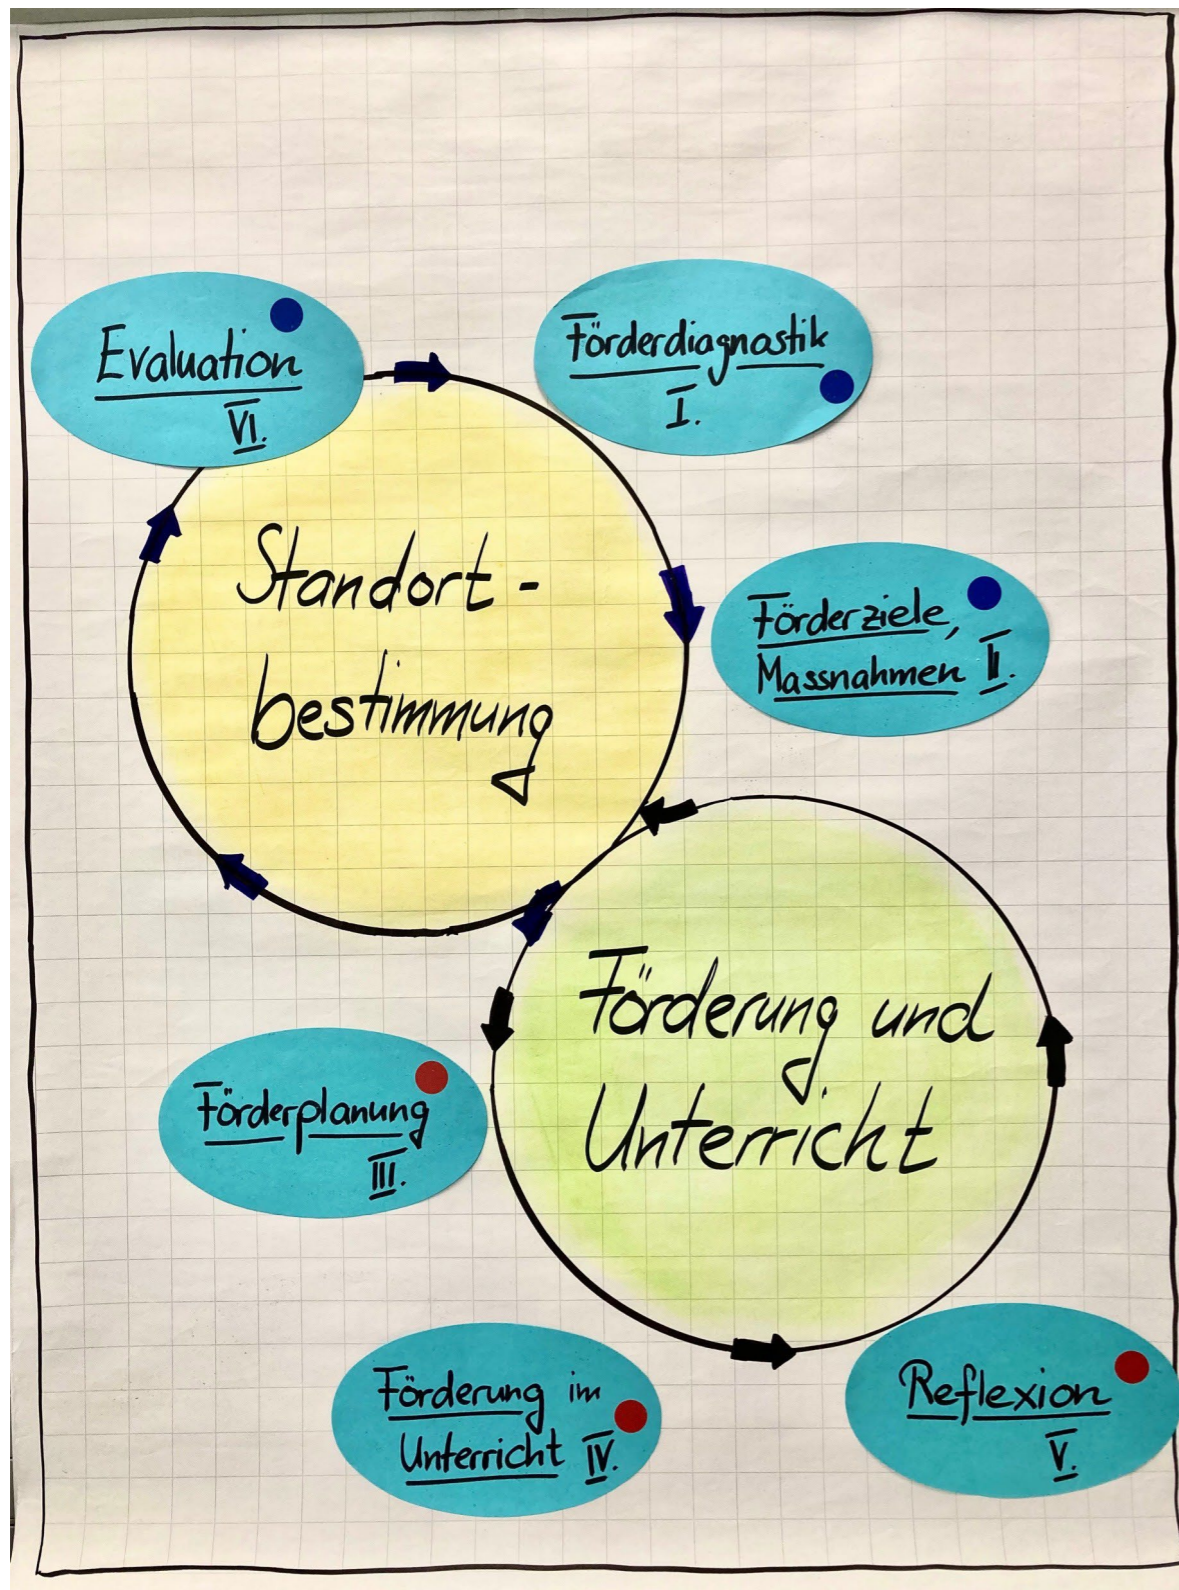 Evaluation
VI.
Förderdiagnostik
I.
Standort-
bestimmung
Förderziele,
Massnahmen II.
Förderung und
Unterricht
Förderplanung
III.
Förderung im
Unterricht IV.
Reflexion
V.